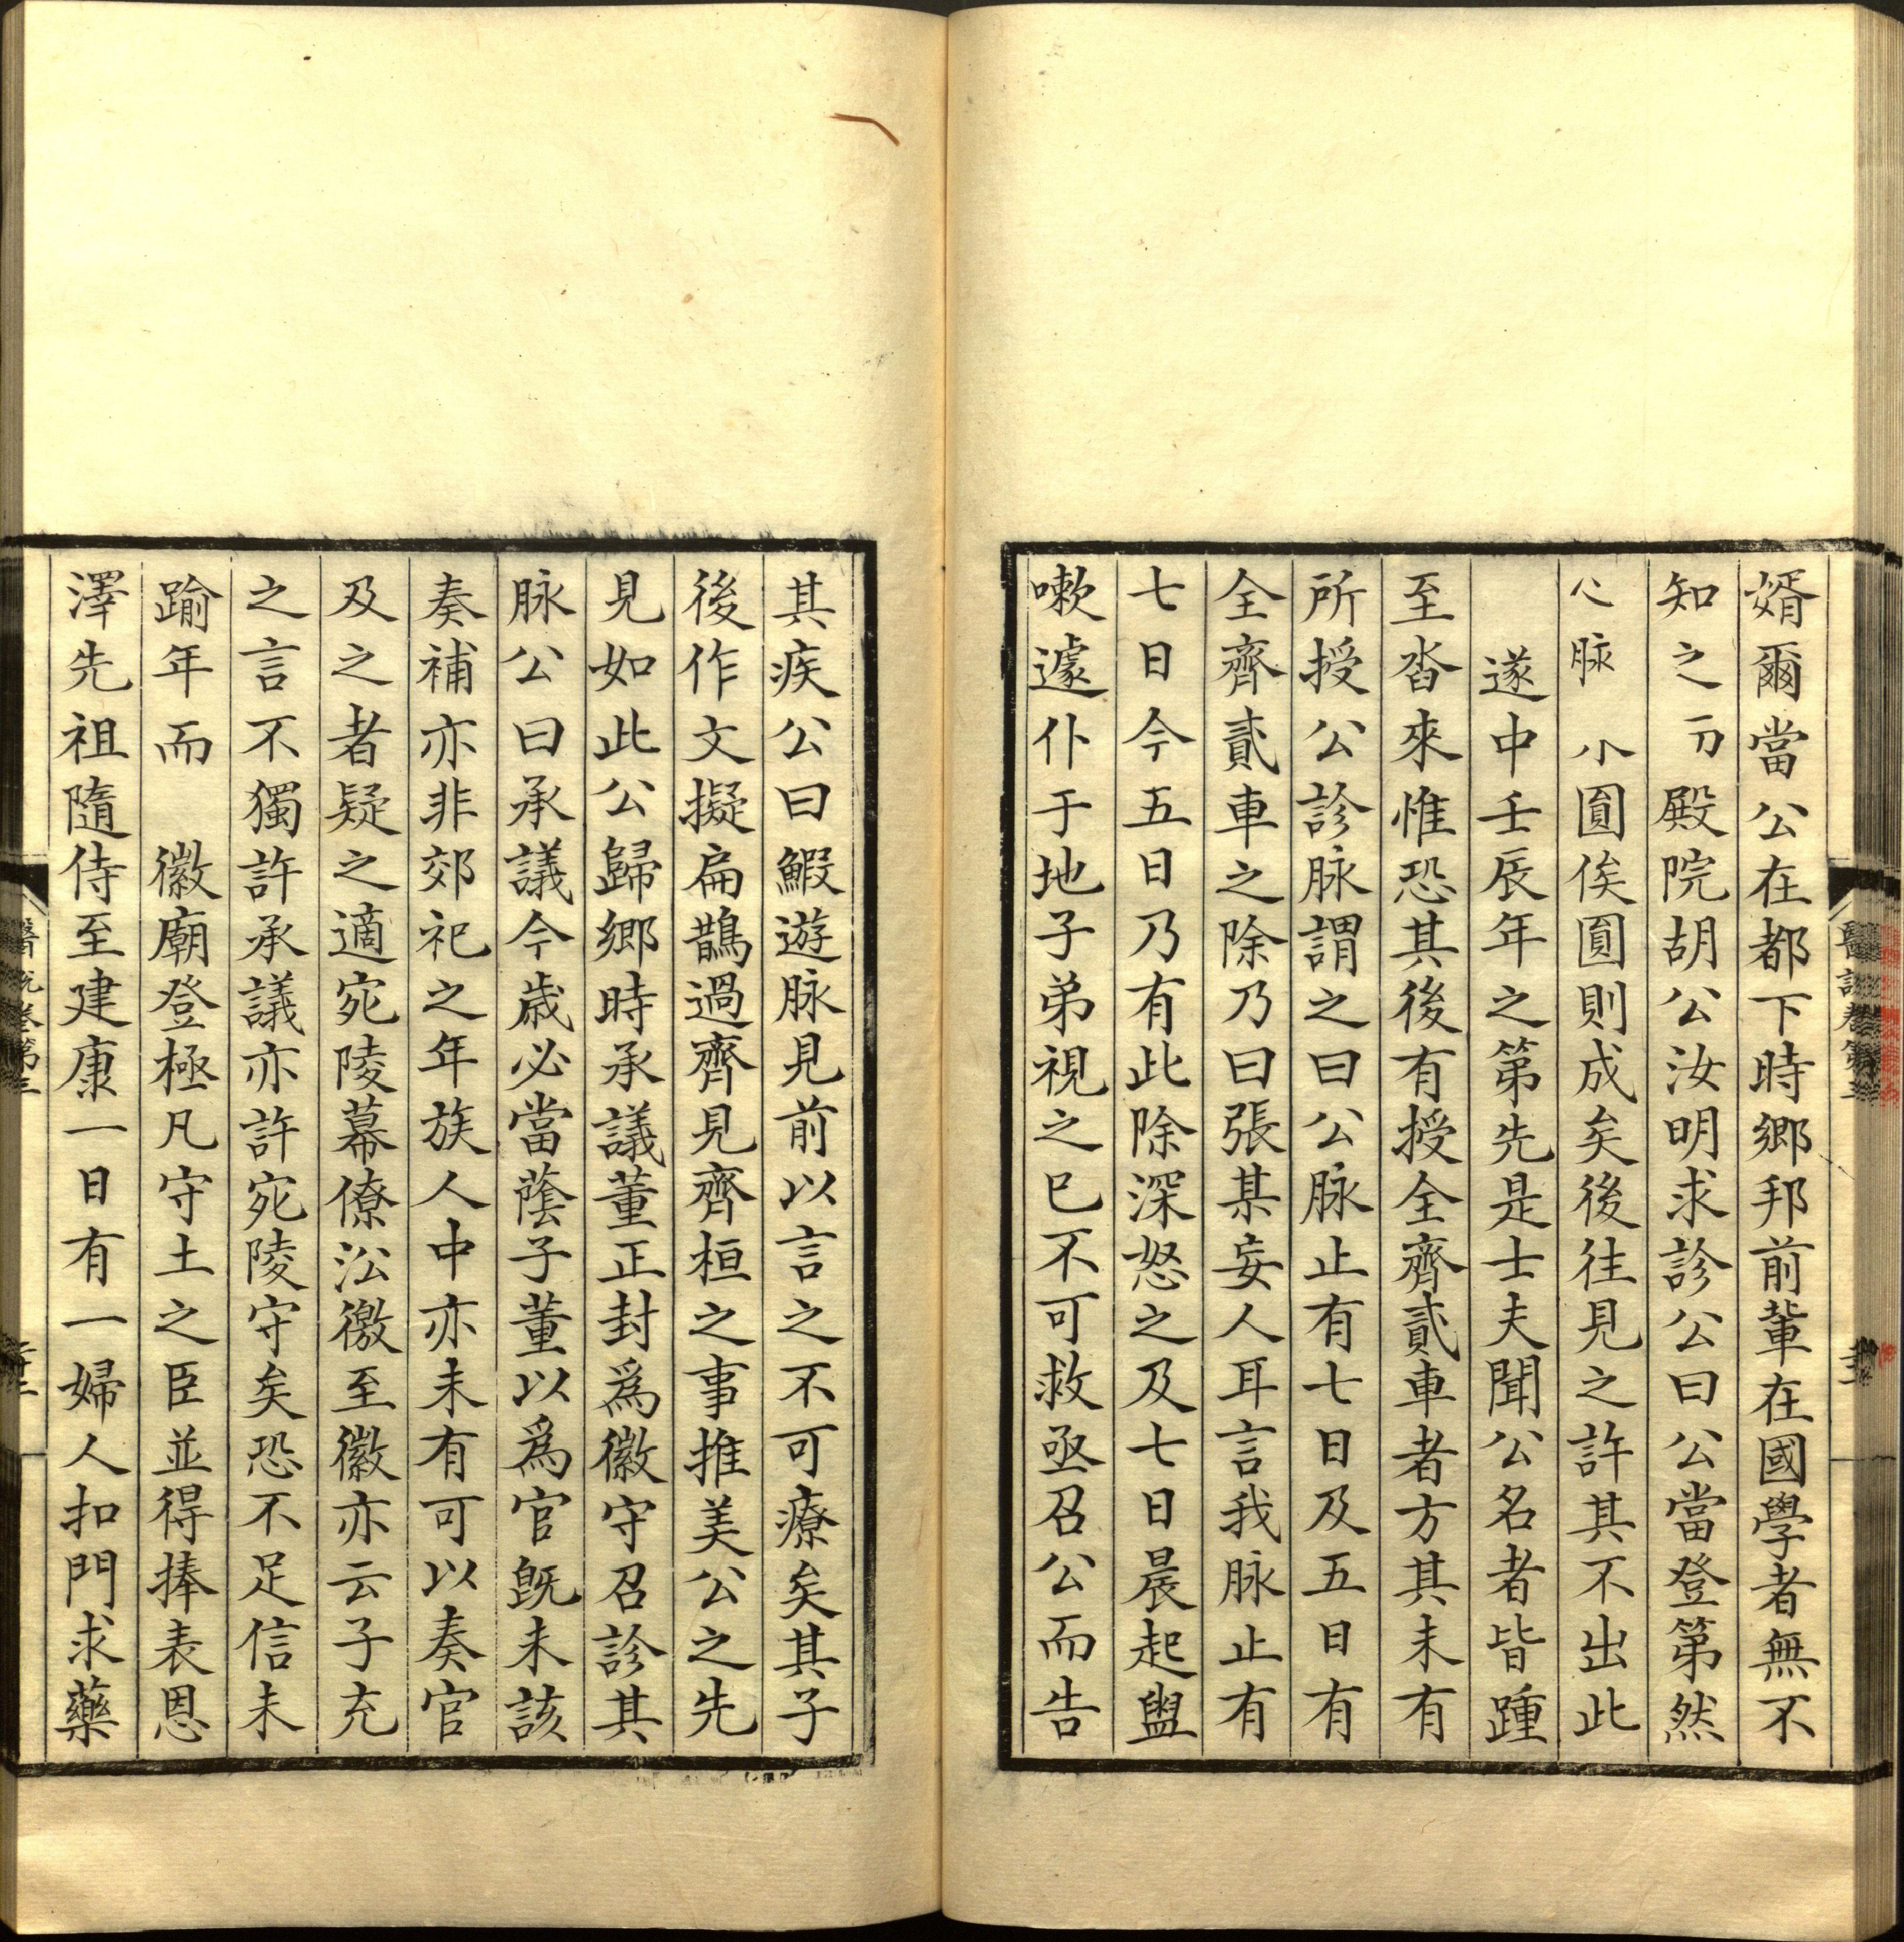 婿爾當公在都下時鄉邦前輩在國學者無不
知之 殿院胡公汝明求診公曰公當登第然
心脉 小圓俟圓則成矣後往見之許其不出此
遂中壬辰年之第先是士夫聞公名者皆踵
至沓來惟恐其後有授全齊貳車者方其未有
所授公診脉謂之曰公脉止有七日及五日有
全齊貳車之除乃曰張某妄人耳言我脉止有
七日今五日乃有此除深怒之及七日晨起盥
嗽遽仆于地子弟視之已不可救亟召公而告
其疾公曰鰕遊脉見前以言之不可療矣其子
後作文擬扁鵲過齊見齊桓之事推美公之先
見如此公歸鄉時承議董正封爲徽守召診其
脉公曰承議今歲必當蔭子董以爲官旣未該
奏補亦非郊祀之年族人中亦未有可以奏官
及之者疑之適宛陵幕僚㳂檄至徽亦云子充
之言不獨許承議亦許宛陵守矣恐不足信未
踰年而 徽廟登極凡守土之臣並得捧表恩
澤先祖隨侍至建康一日有一婦人扣門求藥
醫說卷第三